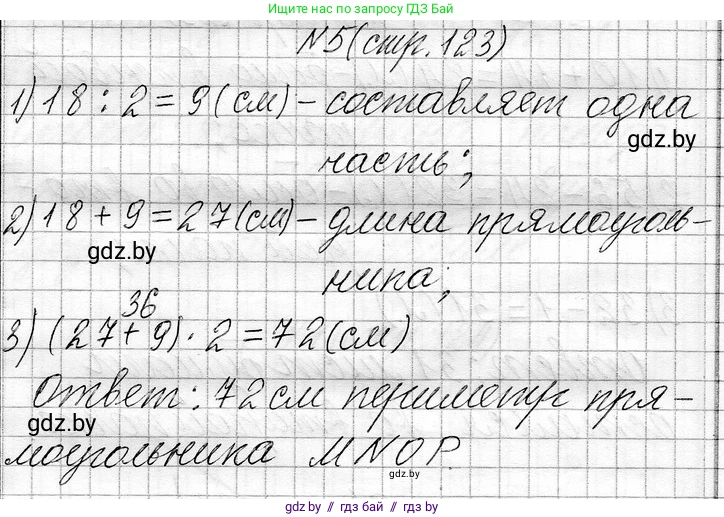 Ищите нас в Telegram
по запросу ГДЗ Бай
№5 (стр. 123)
1) 18 : 2 = 9 (см) – составляет одна
gdz.by
часть;
2) 18 + 9 = 27 (см) – длина прямоуголь-
gdz.by
ника;
36
3) (27 + 9) · 2 = 72 (см)
Ответ: 72 см периметр пря-
gdz.by
моугольника MNOP.
gdz.by
gdz.by // гдз бай // гдз by